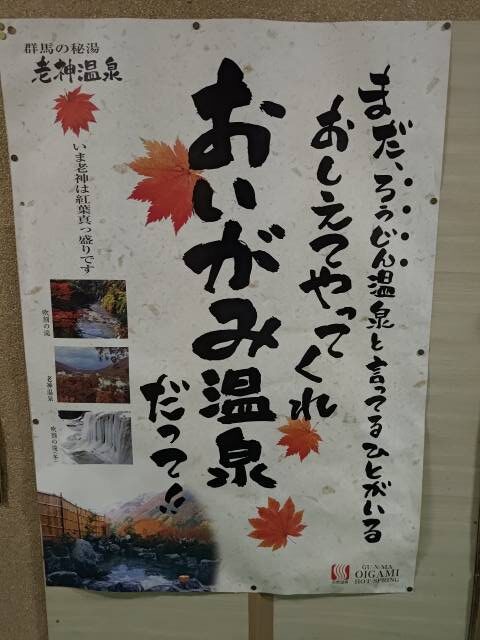 まだ、ろうじん温泉と言ってるひとがいる
おしえてやってくれ
おいがみ温泉
だって!!
群馬の秘湯
老神温泉
いま老神は紅葉真っ盛りです
吹割の滝
老神温泉
吹割の滝(冬)
GUNMA
OIGAMI
HOT SPRING